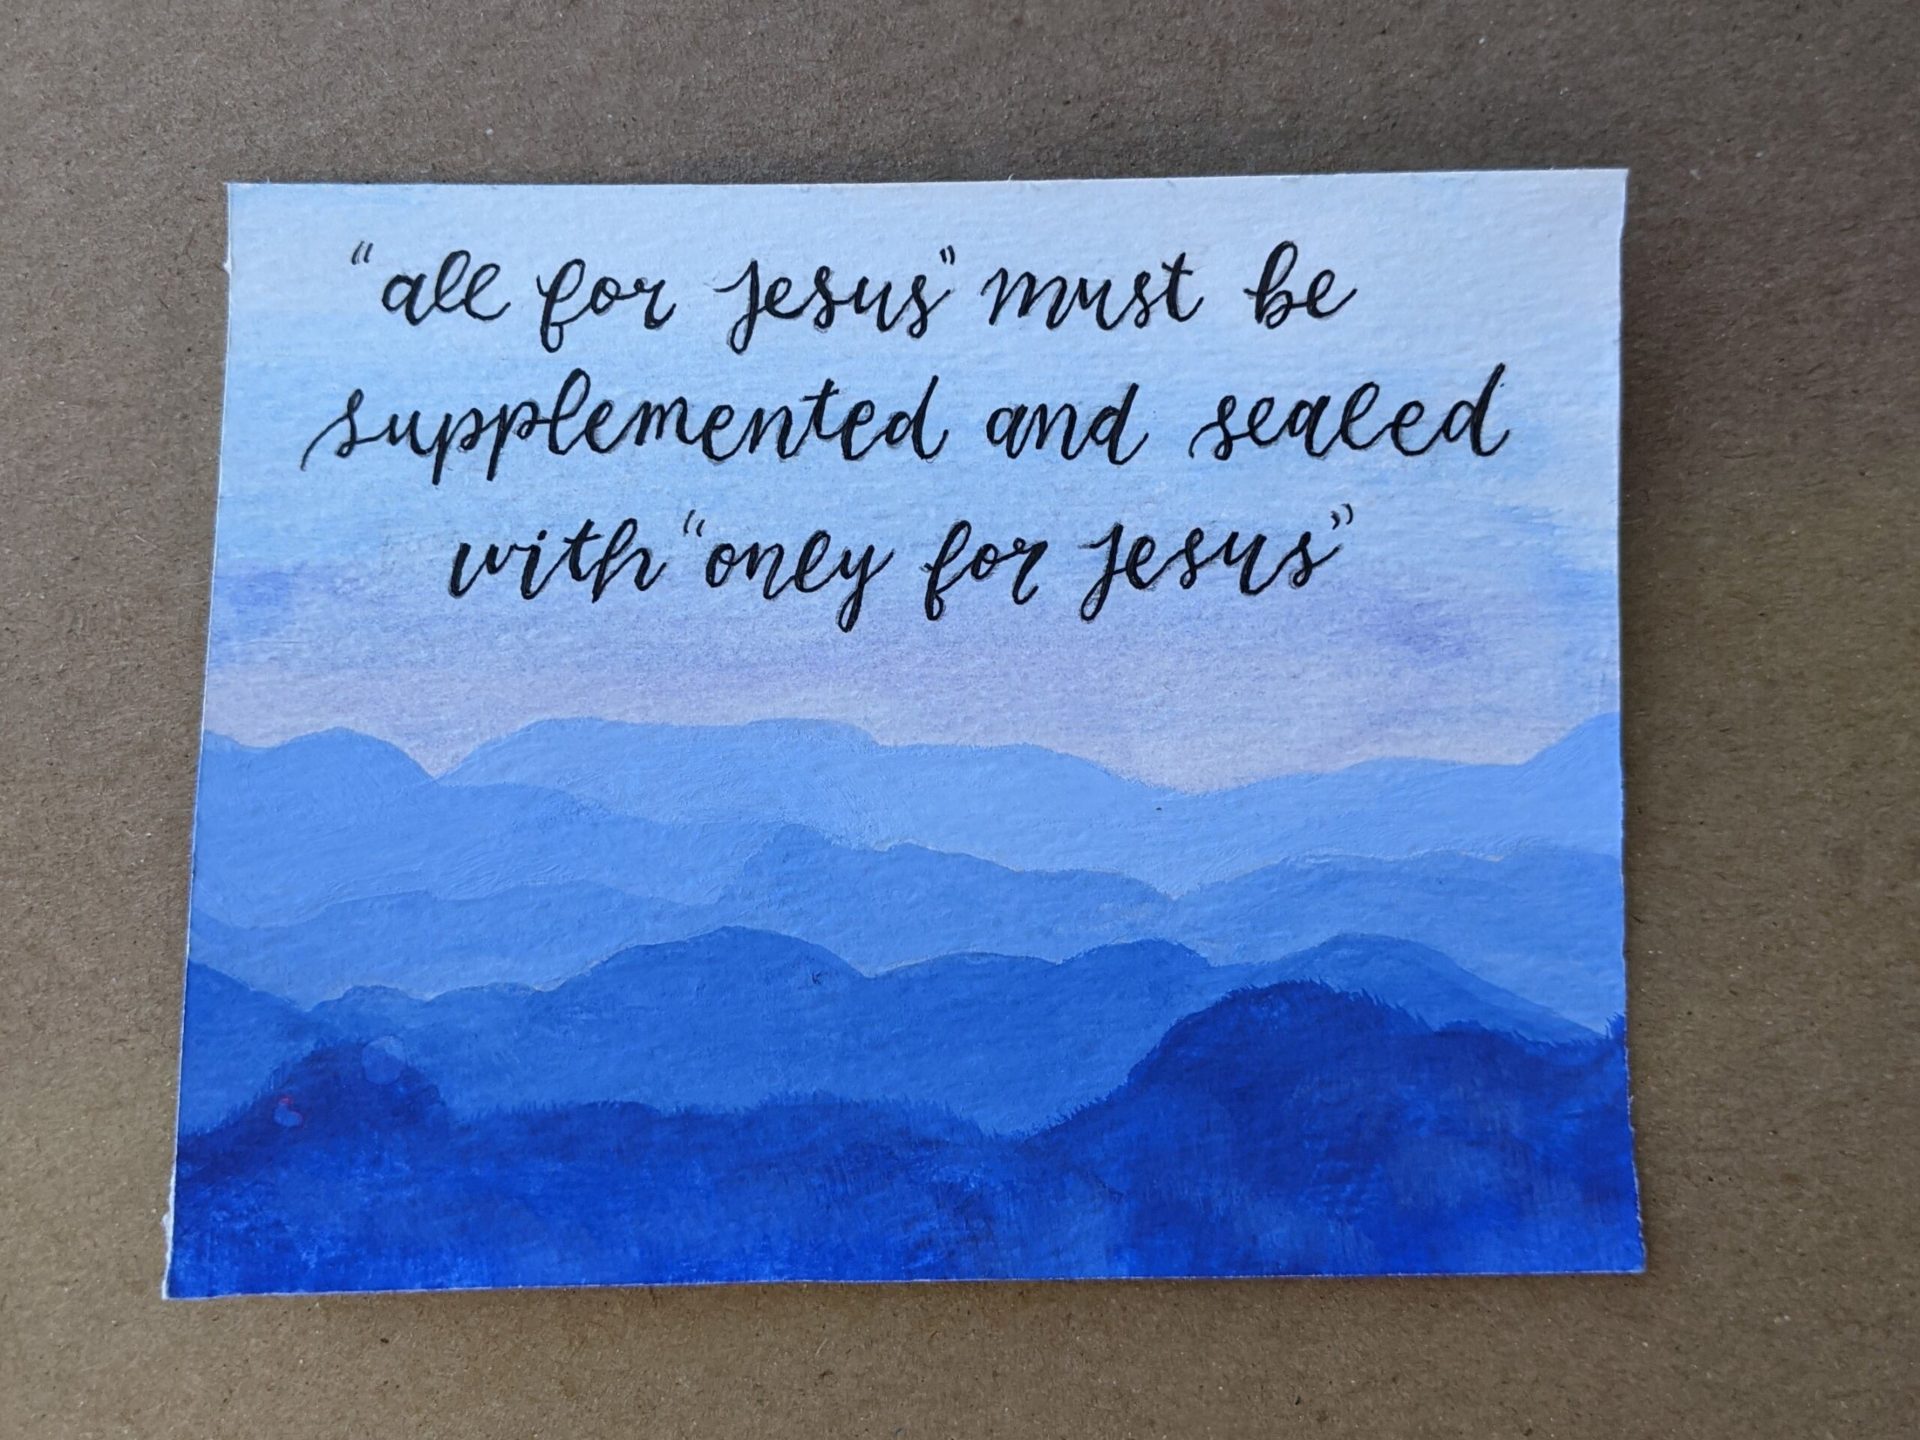 "all for Jesus" must be
supplemented and sealed
with "only for Jesus"